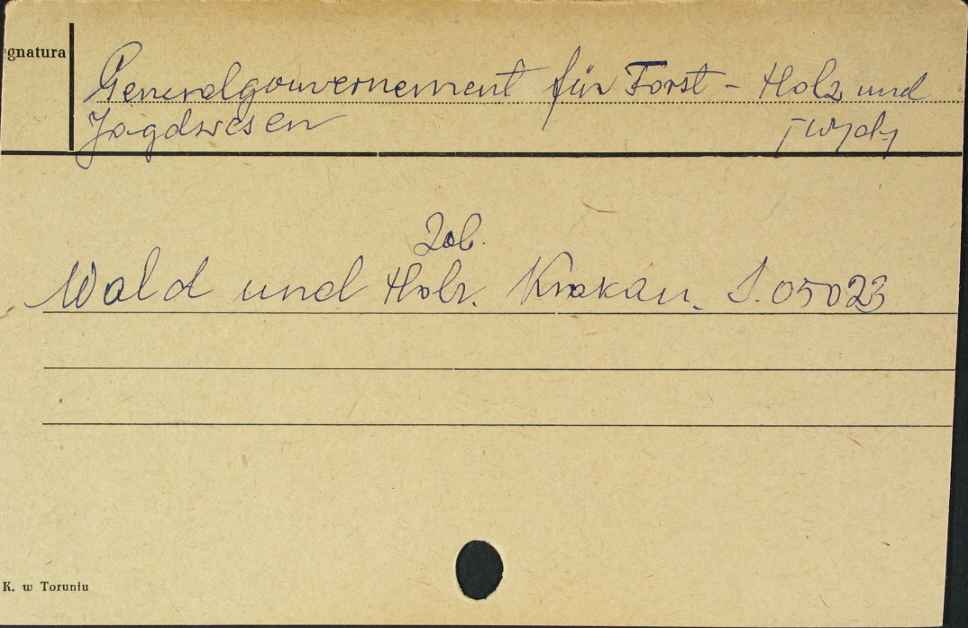 gnatura
Generalgouvernement für Forst - Holz und
Jagdwesen /wyd./
Zob.
Wald und Holz. Krakau. S. 05023
K. w Toruniu